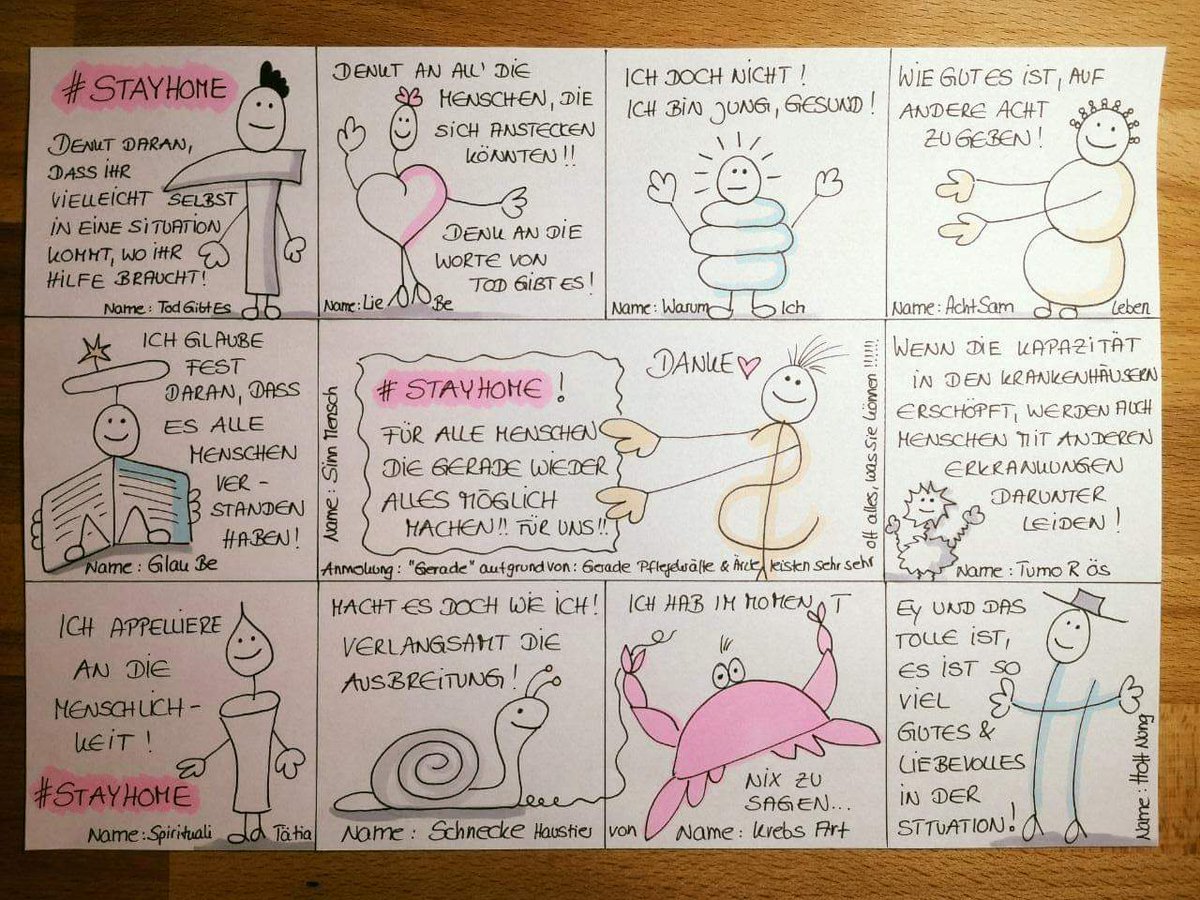 #STAYHOME
DENKT DARAN,
DASS IHR
VIELLEICHT SELBST
IN EINE SITUATION
KOMMT, WO IHR
HILFE BRAUCHT!
Name: Tod Gibt Es
DENKT AN ALL' DIE
MENSCHEN, DIE
SICH ANSTECKEN
KÖNNTEN!!
DENK AN DIE
WORTE VON
TOD GIBT ES!
Name: Lie Be
ICH DOCH NICHT!
ICH BIN JUNG, GESUND!
Name: Warum Ich
WIE GUT ES IST, AUF
ANDERE ACHT
ZU GEBEN!
Name: AchtSam Leben
ICH GLAUBE
FEST
DARAN, DASS
ES ALLE
MENSCHEN
VER-
STANDEN
HABEN!
Name: Glau Be
Name: Sinn Mensch
# STAYHOME!
FÜR ALLE MENSCHEN
DIE GERADE WIEDER
ALLES MÖGLICH
MACHEN!! FÜR UNS!!
DANKE
Anmerkung: "Gerade" aufgrund von: Gerade Pflegekräfte & Ärzte leisten sehr sehr
oft alles, was Sie können!!!!!!
WENN DIE KAPAZITÄT
IN DEN KRANKENHÄUSERN
ERSCHÖPFT, WERDEN AUCH
MENSCHEN MIT ANDEREN
ERKRANKUNGEN
DARUNTER
LEIDEN!
Name: Tumo R ös
ICH APPELLIERE
AN DIE
MENSCHLICH-
KEIT!
#STAYHOME
Name: Spirituali Tätia
MACHT ES DOCH WIE ICH!
VERLANGSAMT DIE
AUSBREITUNG!
Name: Schnecke Haustier von
ICH HAB IM MOMENT
NIX ZU
SAGEN...
Name: Krebs Art
EY UND DAS
TOLLE IST,
ES IST SO
VIEL
GUTES &
LIEBEVOLLES
IN DER
SITUATION!
Name: Hoff Nung